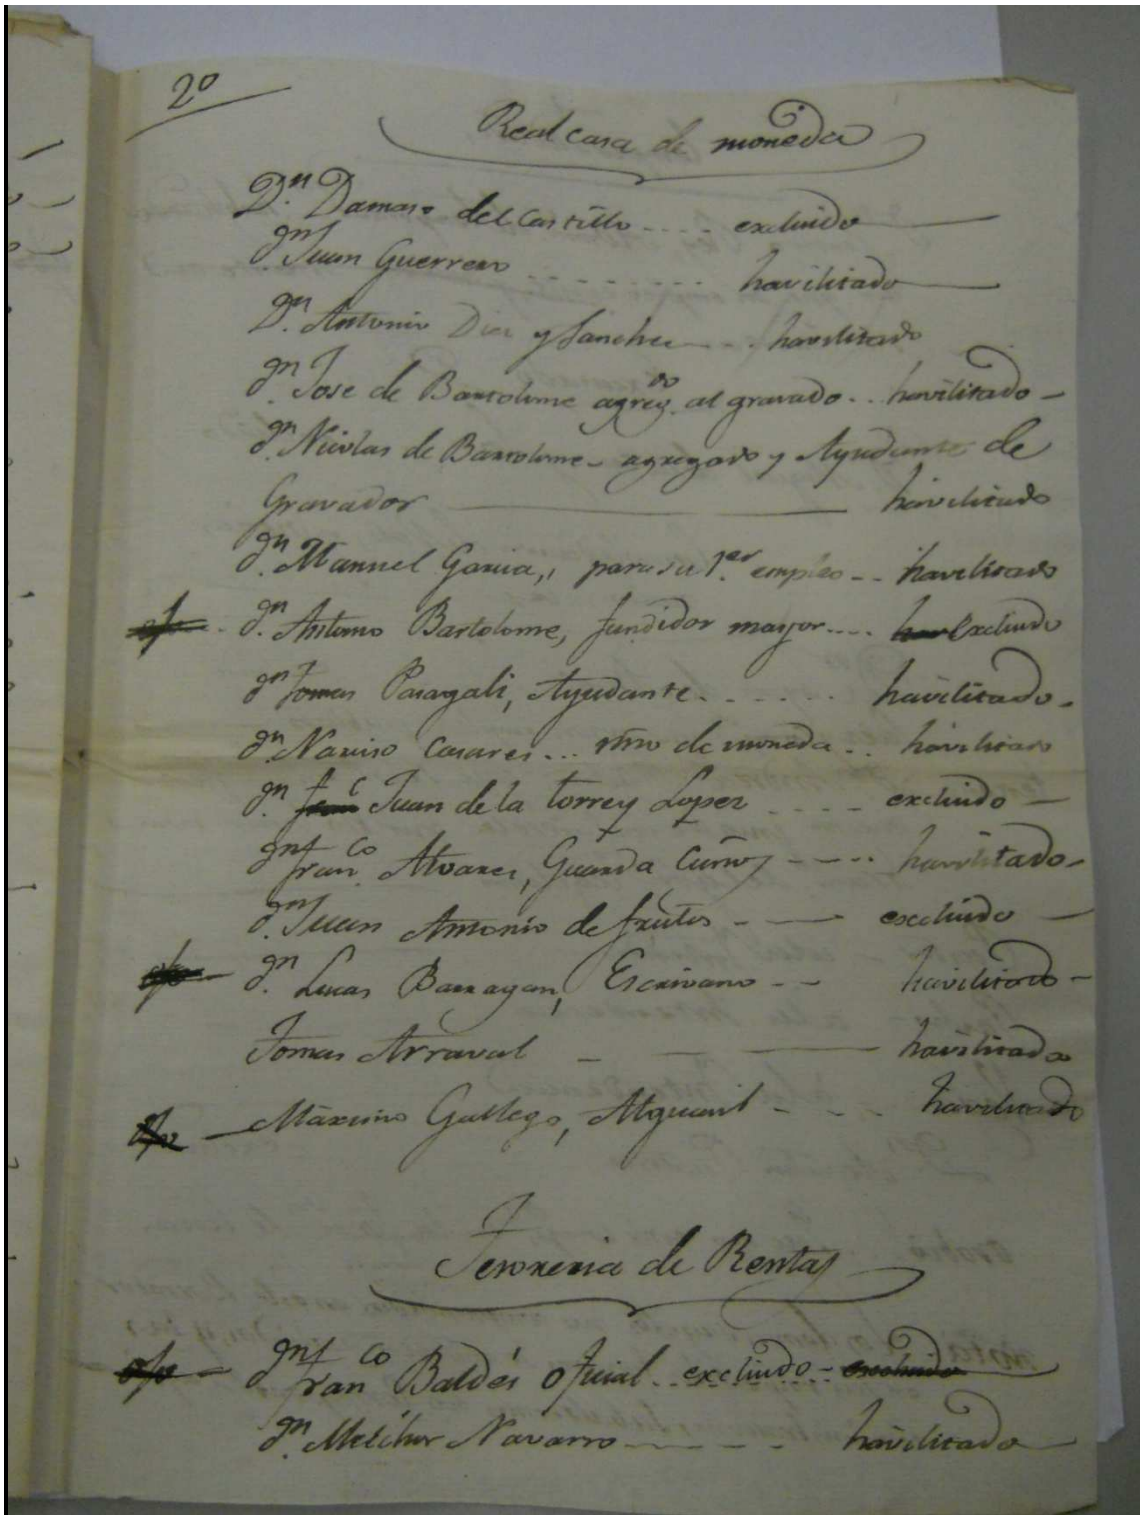 2º
Real casa de moneda
D.n Damaso del Castillo .... excluido
D.n Juan Guerrero ........ havilitado
D.n Antonio Diez y Sanchez ... havilitado
D.n Jose de Bartolome agreg.do al gravado .. havilitado
D.n Nicolas de Bartolome - agregado y Ayudante de
Gravador havilitado
D.n Manuel Garcia, para su 1.er empleo .. havilitado
D.n Antonio Bartolome, fundidor mayor .... Excluido
D.n Tomas Paragali, Ayudante ...... havilitado
D.n Narciso Casares ... de moneda .. havilitado
D.n Juan de la Torre y Lopez .... excluido
D.n Fran.co Alvarez, Guarda Cuños .... havilitado
D.n Juan Antonio de frutos - excluido
D.n Lucas Barragan, Escrivano - - havilitado
Tomas Arraval - havilitado
Maximo Gallego, Alguacil - - - havilitado
Tesoreria de Rentas
D.n Fran.co Baldés oficial .. excluido - excluido
D.n Melchor Navarro havilitado